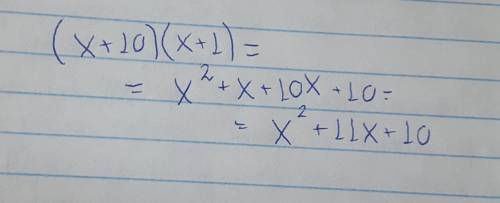 (x+10)(x+1)=
= x²+x+10x+10=
= x²+11x+10